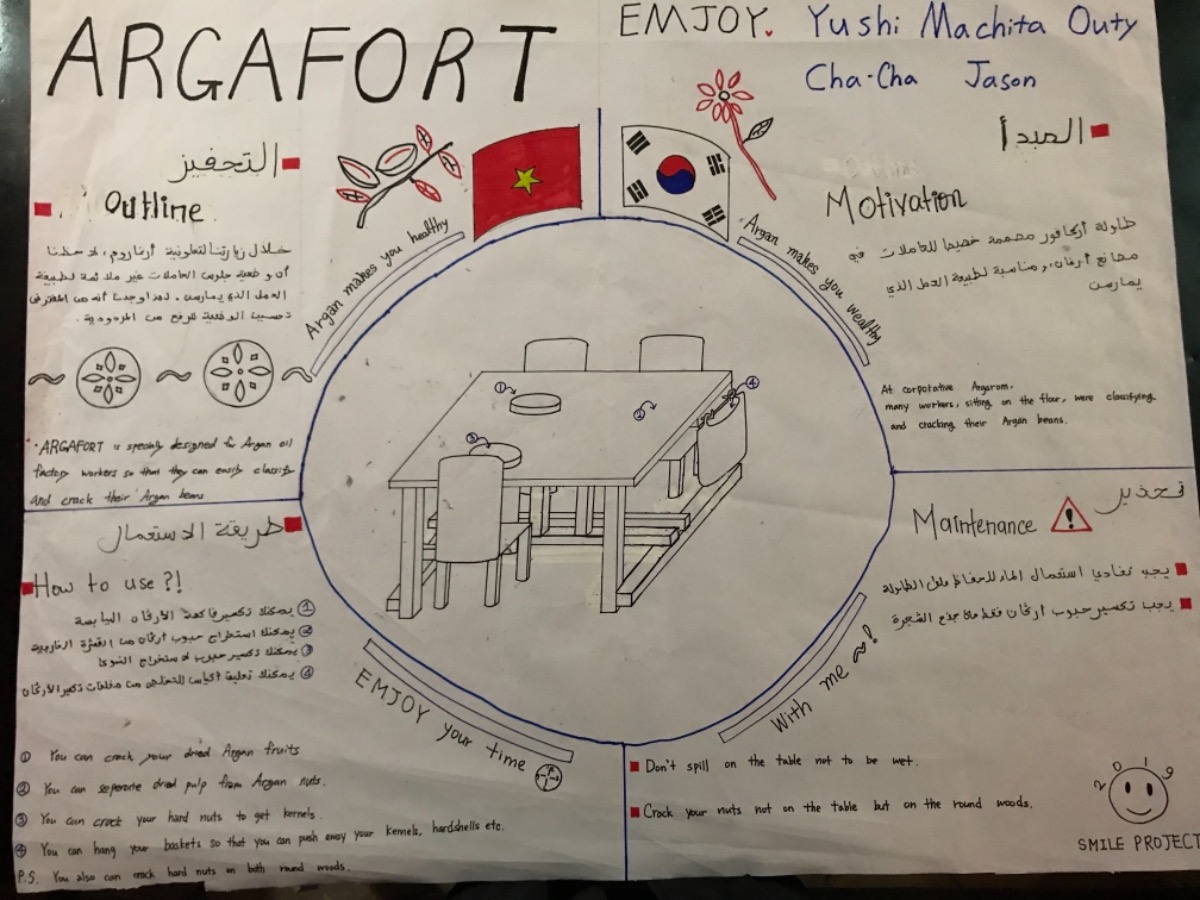 ARGAFORT
EMJOY. Yushi Machita Outy
Cha-Cha Jason
التحفيز
Outline
خلال زيارتنا لتعاونية أرغاروم، لاحظنا
أن وضعية جلوس العاملات غير ملائمة لطبيعة
العمل الذي يمارسن. لهذا وجدنا أنه من
تحسين الوضعية للرفع من المردودية.
ARGAFORT is specialy designed for Argan oil
factory workers so that they can easily classify
and crack their Argan beans
المبدأ
Motivation
طاولة أركافور مصممة خصيصا للعاملات في
مصانع أرغان، ومناسبة لطبيعة العمل الذي
يمارسن
At corporative Argarom.
many workers, sitting on the floor, were classifying
and cracking their Argan beans.
Argan makes you healthy
Argan makes you wealthy
①
②
③
④
طريقة الاستعمال
How to use ?!
① يمكنك تكسير فاكهة الأرگان اليابسة
② يمكنك استخراج حبوب أرگان من القشرة الخارجية
③ يمكنك تكسير حبوب لاستخراج النوى
④ يمكنك تعليق أكياس للتخلص من مخلفات تكسير الأرگان
① You can crack your dried Argan fruits
② You can seperate dried pulp from Argan nuts.
③ You can crack your hard nuts to get kernels.
④ You can hang your baskets so that you can push away your kernels, hardshells etc.
P.S. You also can crack hard nuts on both round woods.
EMJOY your time
With me ~!
تحذير
Maintenance !
يجب تفادي استعمال الماء للحفاظ على الطاولة
يجب تكسير حبوب أرگان فقط جذع الشجرة
Don't spill on the table not to be wet.
Crack your nuts not on the table but on the round woods.
2019
SMILE PROJECT